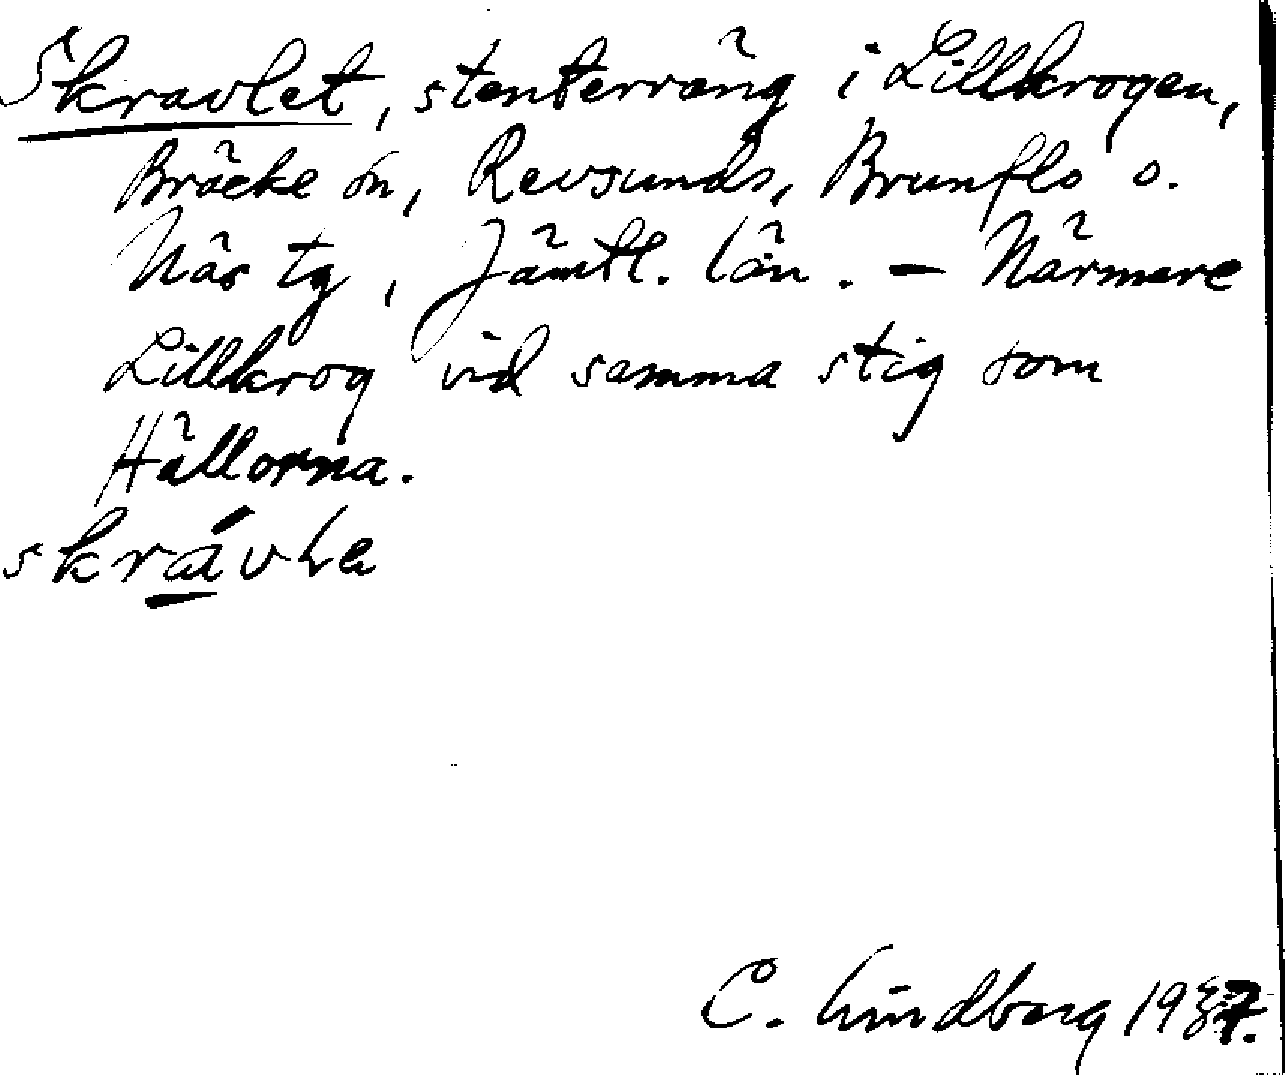 Skravlet, stenterräng i Lillkrogen,
Bräcke sn, Revsunds, Brunflo o.
Näs tg, Jämtl. län. – Närmare
Lillkrog vid samma stig som
Hällorna.
skrávle
C. Lindberg